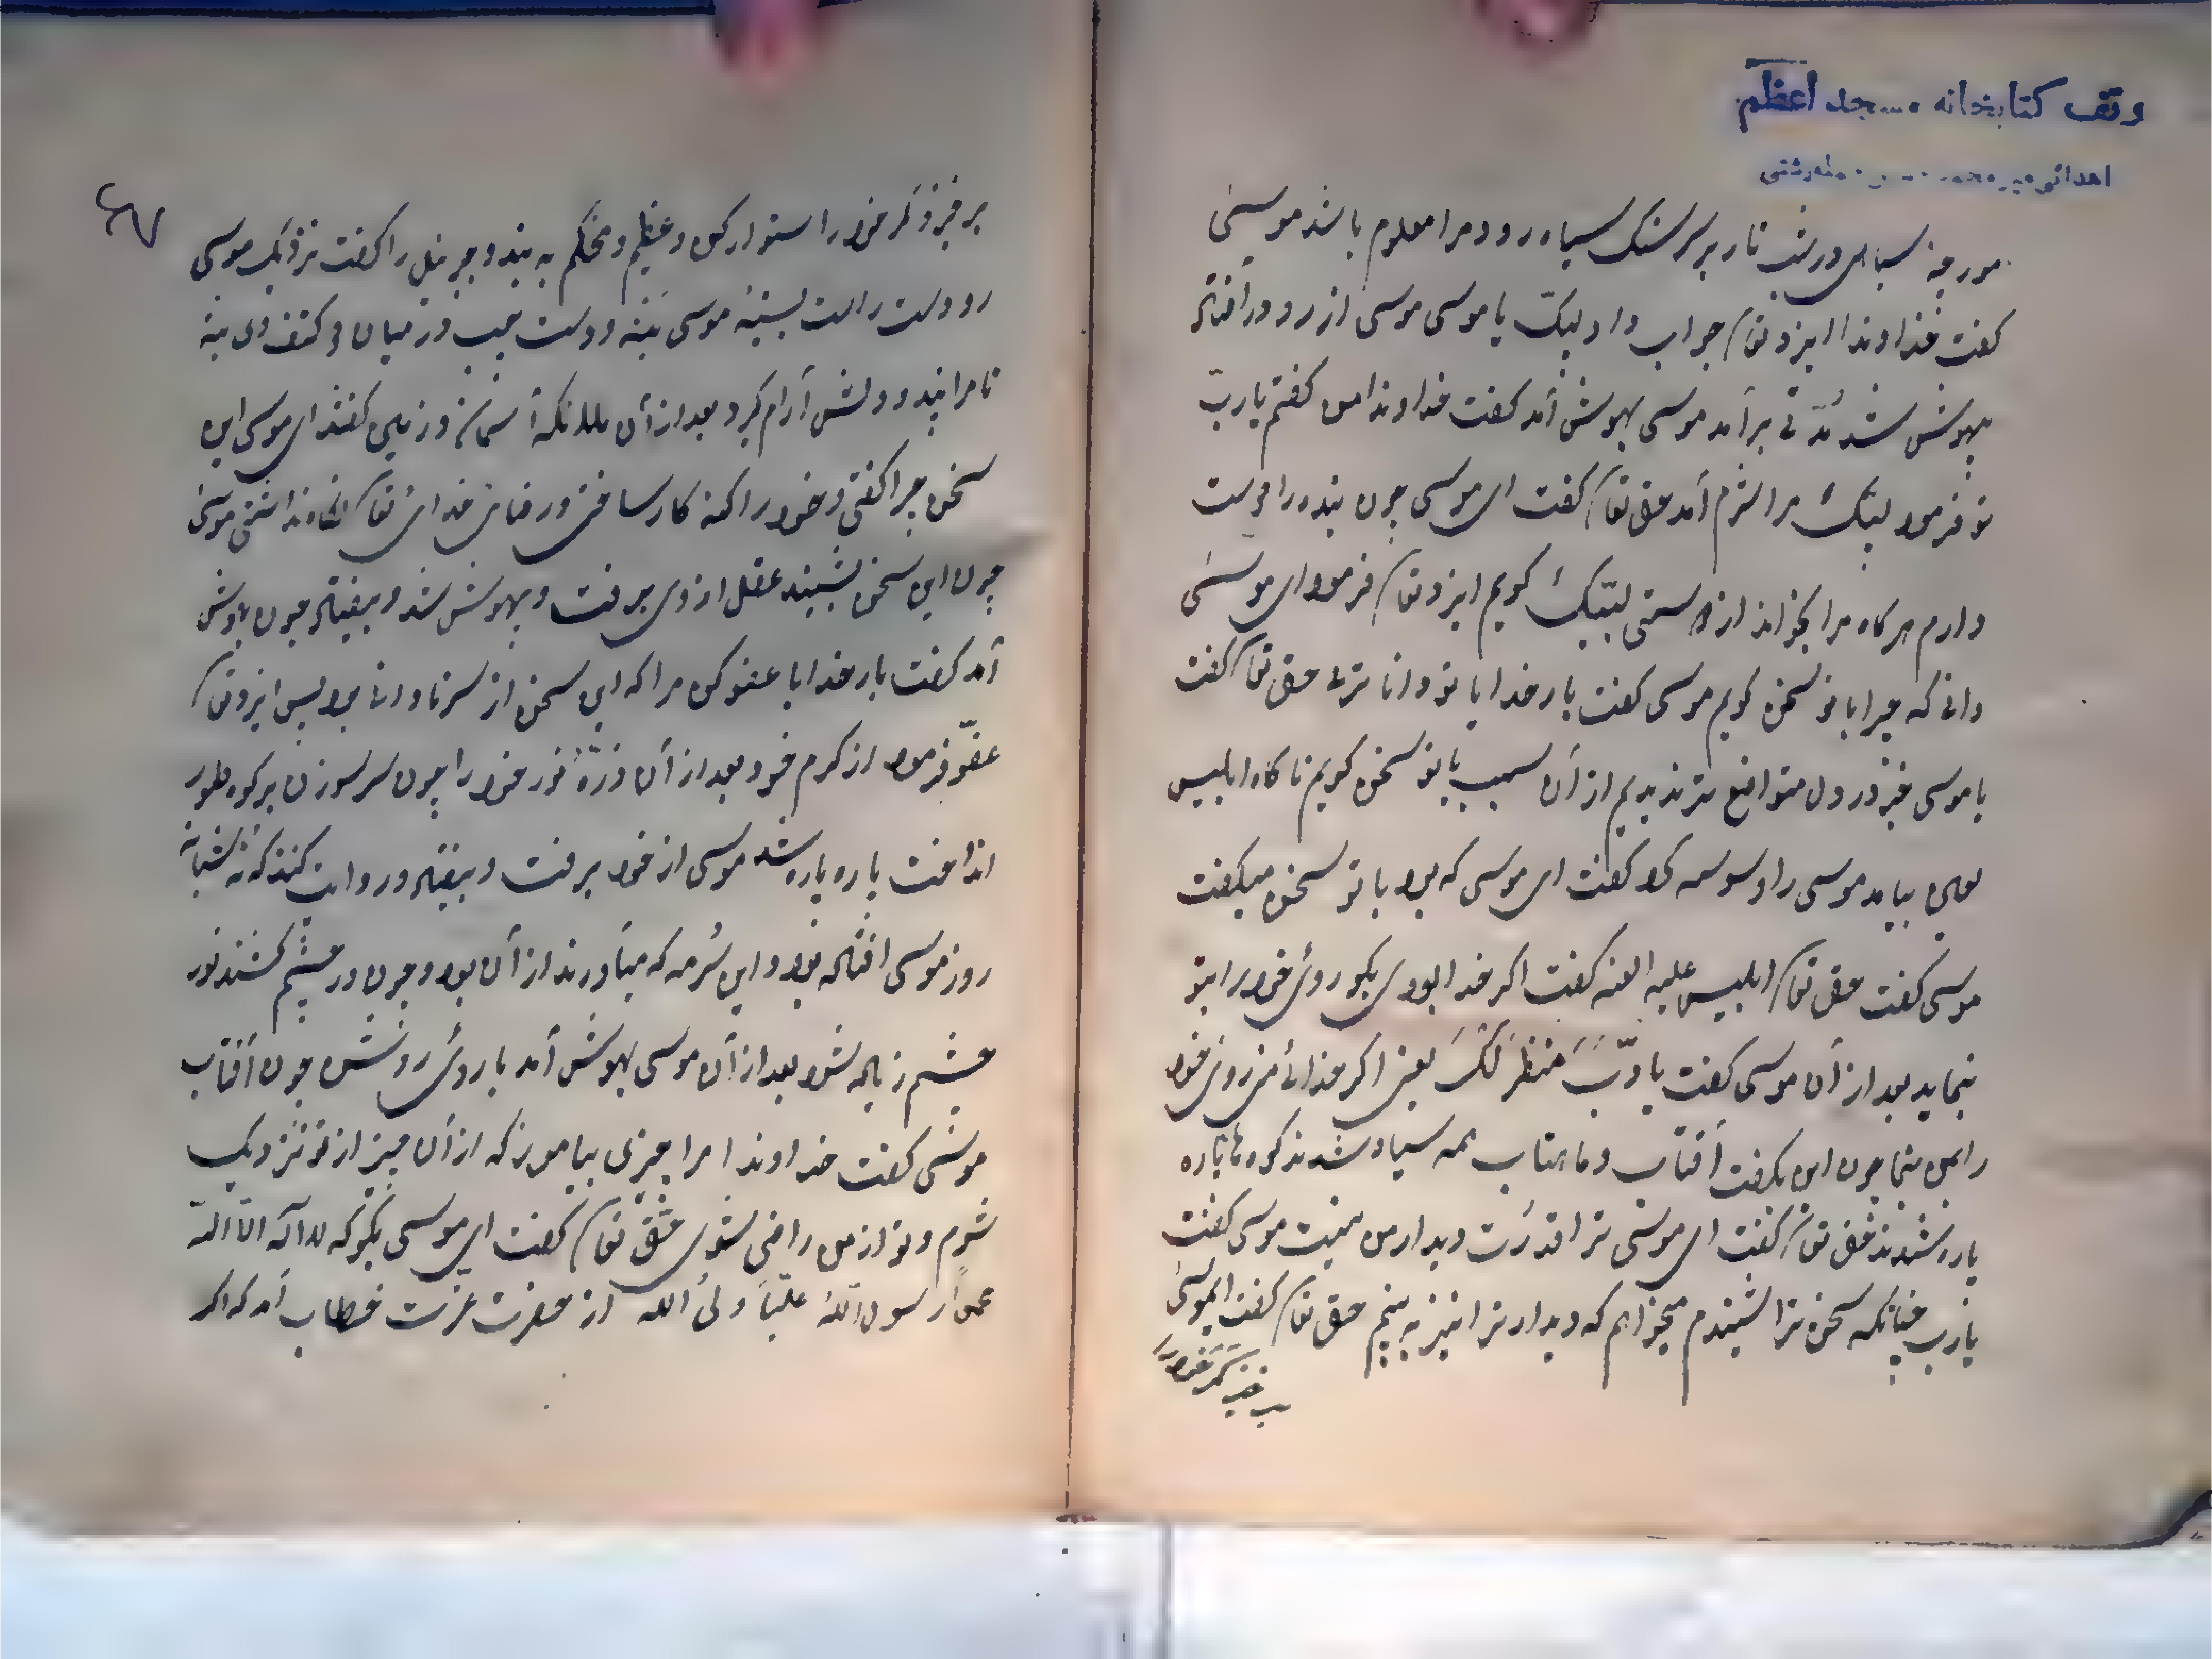 وقف کتابخانه مسجد اعظم
اهدائی میر محمد
مورچه سیاهی در شب تار بر سر سنک سیاه رود مرا معلوم باشد موسی
کفت خداوندا ایزد تعا جواب داد لبیک یا موسی موسی از رو درافتاد
بیهوش شد مدّتی برآمد موسی بهوش آمد کفت خداوندا من کفتم یا ربّ
تو فرمود لبیک مرا شرم آمد حق تعا کفت ای موسی چون بنده را دوست
دارم هرکاه مرا بخواند از دوستی لبّیک کویم ایزد تعا فرمود ای موسی
دانی که چرا با تو سخن کویم موسی کفت بار خدایا تو داناتری حق تعا کفت
یا موسی در دل متواضع تر ندیدم از آن سبب با تو سخن کویم تا کاه ابلیس
لعین بیامد موسی را وسوسه کرد کفت ای موسی که بود با تو سخن میکفت
موسی کفت حق تعا ابلیس علیه العنه کفت اکر خدا بودی بکو روی خود را بتو
بنماید بعد از آن موسی کفت یا ربّ انظر لک یعنی اکر خدائی من روی خود
را بمن بنما چون این بکفت آفتاب و ماهتاب همه سیاه شدند کوه ها پاره
پاره شدند حق تعا کفت ای موسی ترا قدرت دیدار من نیست موسی کفت
یا رب چنانکه سخن ترا شنیدم میخواهم که دیدار ترا نیز به بینم حق تعا کفت ایموسی
برخیز کمر خود را
۶۷
برخیز و کمر خود را استوار کن و عظیم و محکم به بند و جبرئیل را کفت نزدیک موسی
رو دست راست بسینهٔ موسی بنه و دست چپ در میان دو کتف وی بنه
تا مرا بیند و دلش آرام کیرد بعد از آن ملائکه آسمان و زمین کفتند ای موسی این
سخن چرا کفتی و خود را کنه کار ساختی و رضای خدای تعا نکاه نداشتی موسی
چون این سخن بشنید عقل از وی برفت و بیهوش شد و بیفتاد چون بهوش
آمد کفت بار خدایا عفو کن مرا که این سخن از سر نادانی بود پس ایزد تعا
عفو فرمود از کرم خود بعد از آن ذرّهٔ نور خود را چون سر سوزن بر کوه طور
انداخت پاره پاره شد موسی از خود برفت و بیفتاد و روایت کنند که نه شبانه
روز موسی افتاده بود و این سُرمه که میآورند از آن بود و چون در چشم کشند نور
چشم زیاده شود بعد از آن موسی بهوش آمد با روی روشن چون آفتاب
موسی کفت خداوندا مرا چیزی بیاموز که از آن چیز از تو نزدیک
شوم و تو از من راضی شوی حق تعا کفت ای موسی بکو که لا اله الا الله
محمداً رسول الله علیّاً ولی الله از حضرت عزّت خطاب آمد که اکر